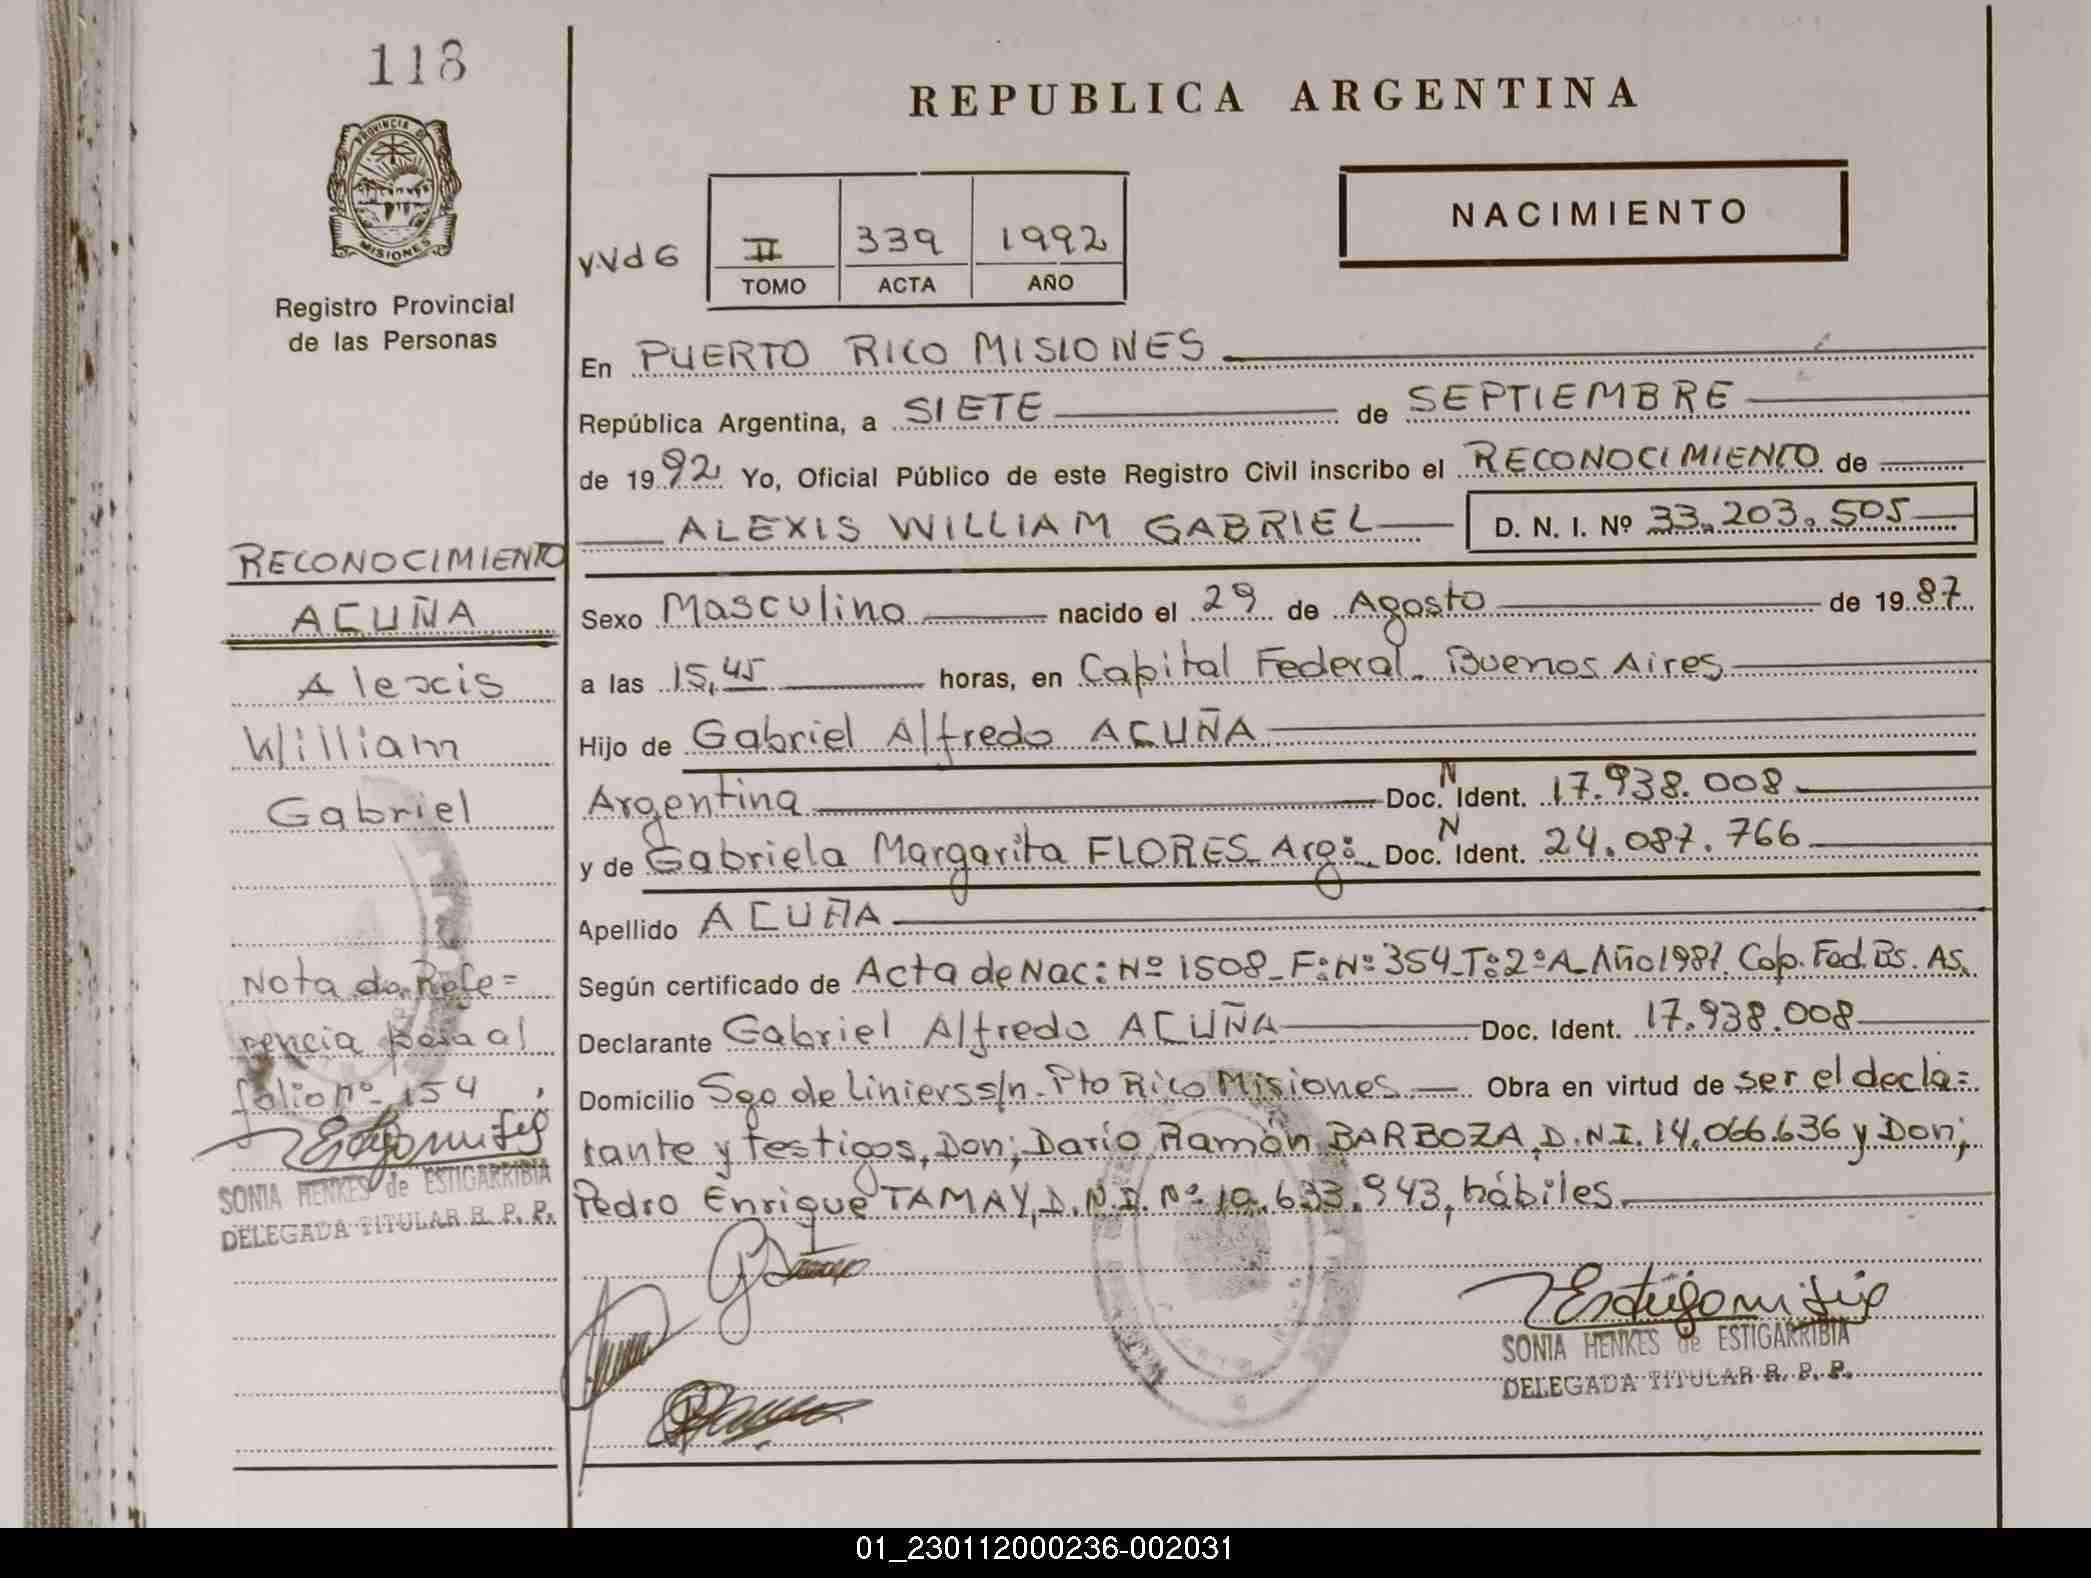 118
PROVINCIA DE
MISIONES
Registro Provincial
de las Personas
REPUBLICA ARGENTINA
NACIMIENTO
V.V d G
II 339 1992
TOMO ACTA AÑO
En PUERTO RICO MISIONES
República Argentina, a SIETE de SEPTIEMBRE
de 1992 Yo, Oficial Público de este Registro Civil inscribo el RECONOCIMIENTO de
ALEXIS WILLIAM GABRIEL D. N. I. Nº 33.203.505
Sexo Masculino nacido el 29 de Agosto de 1987
a las 15,45 horas, en Capital Federal. Buenos Aires
Hijo de Gabriel Alfredo ACUÑA
Argentina Doc. N Ident. 17.938.008
y de Gabriela Margarita FLORES Arg: Doc. N Ident. 24.087.766
Apellido ACUÑA
Según certificado de Acta de Nac: Nº 1508_F:Nº 354_Tº:2ºA_Año1987. Cap. Fed. Bs. As.
Declarante Gabriel Alfredo ACUÑA Doc. Ident. 17.938.008
Domicilio Sgo de Liniers s/n. Pto Rico Misiones. Obra en virtud de ser el decla=
rante y testigos, Don; Darío Ramón BARBOZA, D.N.I. 14.066.636 y Don;
Pedro Enrique TAMAY, D.N.I. Nº 10.633.943, hábiles.
SONIA HENKES de ESTIGARRIBIA
DELEGADA TITULAR R. P. P.
RECONOCIMIENTO
ACUÑA
Alexis
William
Gabriel
Nota de Refe=
rencia pasa al
folio nº 154
SONIA HENKES de ESTIGARRIBIA
DELEGADA TITULAR R. P. P.
01_230112000236-002031